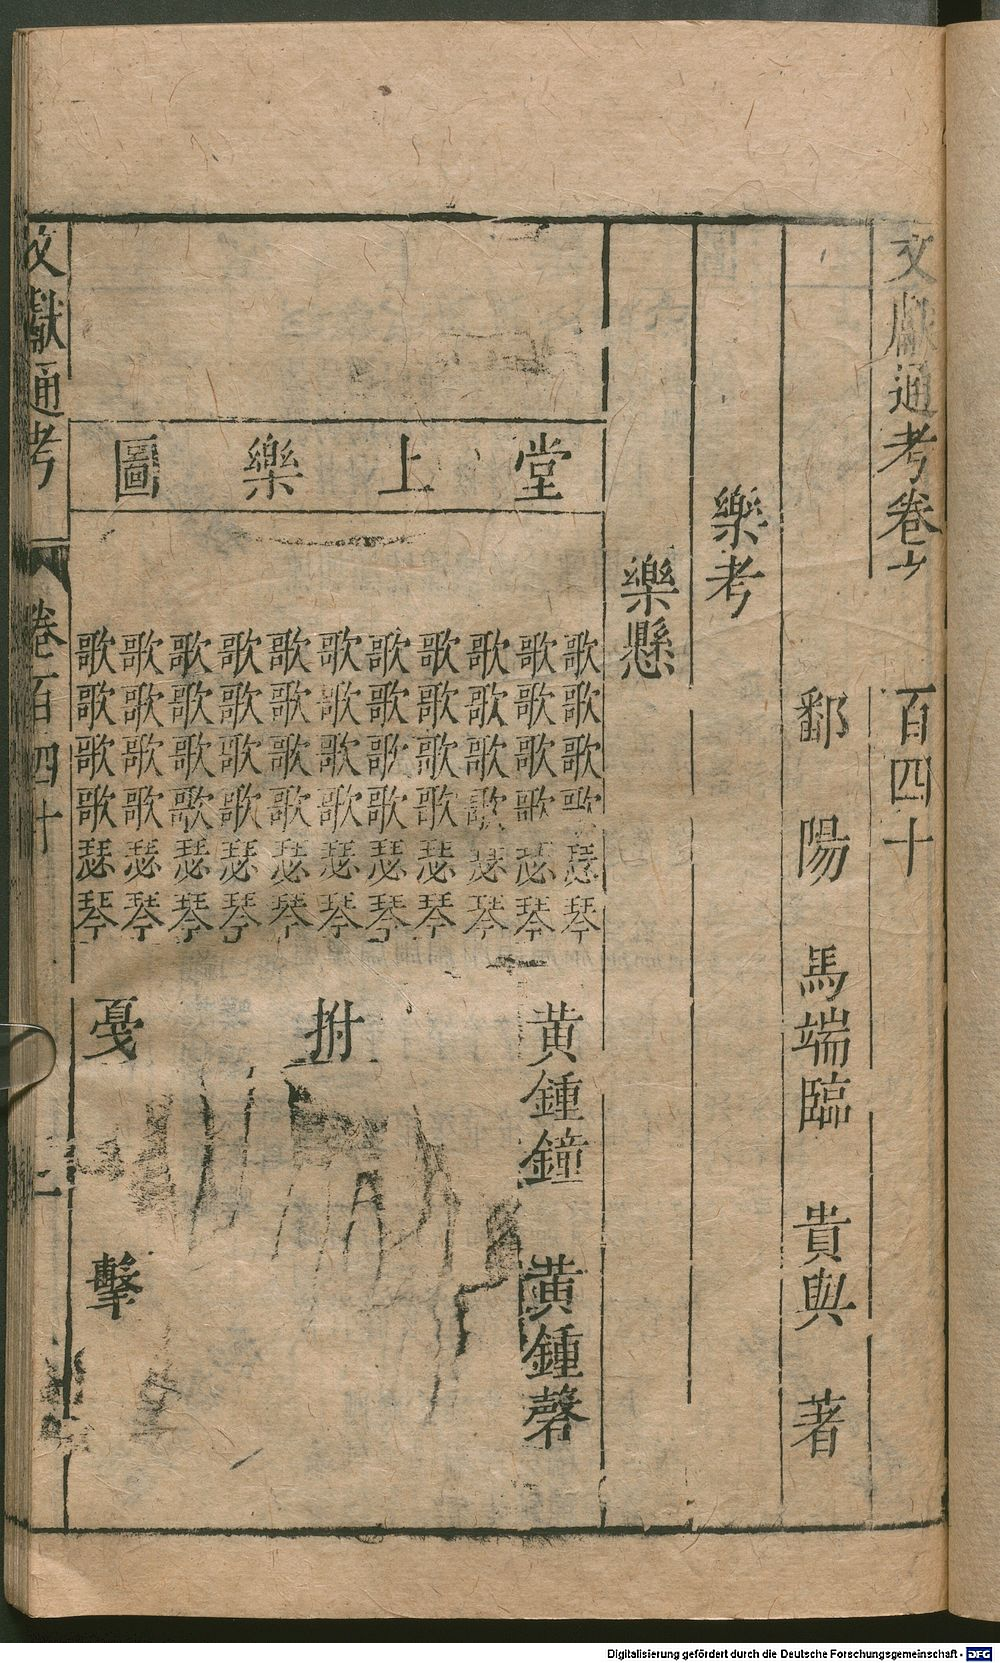 文獻通考卷
百四十
鄱陽馬端臨貴與著
樂考
樂懸
堂上樂圖
歌歌歌歌歌歌歌歌歌歌歌
歌歌歌歌歌歌歌歌歌歌歌
歌歌歌歌歌歌歌歌歌歌歌
歌歌歌歌歌歌歌歌歌歌歌
瑟瑟瑟瑟瑟瑟瑟瑟瑟瑟瑟
琴琴琴琴琴琴琴琴琴琴琴
黃鍾鐘 黃鍾磬
拊
戞 擊
文獻通考 卷百四十
Digitalisierung gefördert durch die Deutsche Forschungsgemeinschaft - DFG